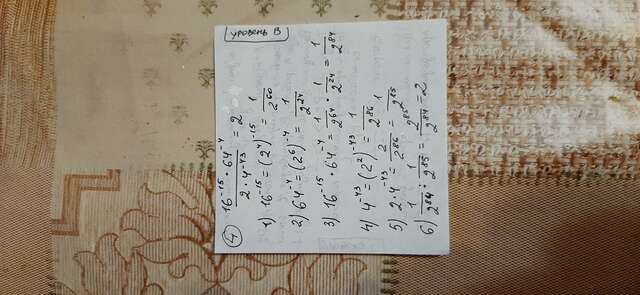 уровень В
4) 16^-15 · 64^-4 / 2 · 4^-43 = 2
1) 16^-15 = (2^4)^-15 = 1/2^60
2) 64^-4 = (2^6)^-4 = 1/2^24
3) 16^-15 · 64^-4 = 1/2^64 · 1/2^24 = 1/2^84
4) 4^-43 = (2^2)^-43 = 1/2^86
5) 2 · 4^-43 = 2/2^86 = 1/2^85
6) 1/2^84 : 1/2^85 = 2^85/2^84 = 2